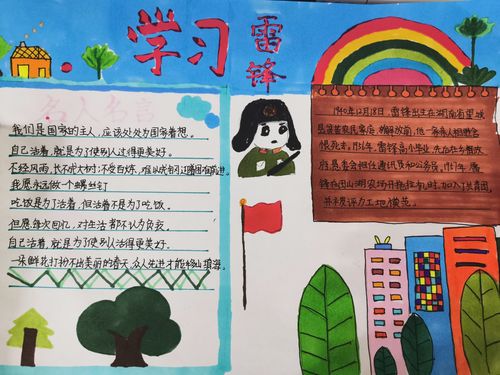 学习
雷锋
名人名言
我们是国家的主人，应该处处为国家着想。
自己活着，就是为了使别人过得更美好。
不经风雨，长不成大树；不受百炼，难以成钢。
我愿永远做一个螺丝钉
吃饭是为了活着，但活着不是为了吃饭。
但愿每次回忆，对生活都不认为负疚。
自己活着，就是为了使别人过得更美好。
一朵鲜花打扮不出美丽的春天，众人先进才能移山填海。
1940年12月18日，雷锋出生在湖南省望城
县贫苦农民家庭，解放前，他一家亲人相继含
恨死去，1956年，雷锋高小毕业，先后在乡政
府，县委会担任通讯员和公务员，1957年，雷
锋在团山湖农场开拖拉机时，加入了共青团
并被评为工地模范。